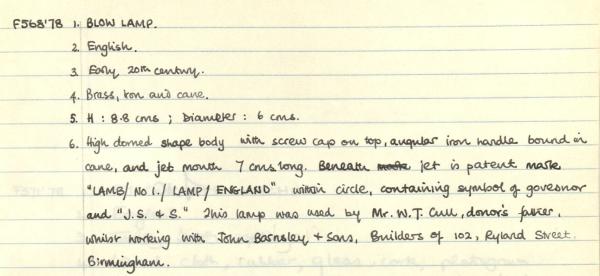 F568'78 1. BLOW LAMP.
2. English.
3. Early 20th century.
4. Brass, iron and cane.
5. H : 8.8 cms ; Diameter : 6 cms.
6. High domed shape body with screw cap on top, angular iron handle bound in
cane, and jet mouth 7 cms long. Beneath jet is patent mark
"LAMB/ NO 1./ LAMP/ ENGLAND" within circle, containing symbol of governor
and "J.S. & S." This lamp was used by Mr. W.J. Cull, donor's father,
whilst working with John Barnsley & Sons, Builders of 102, Ryland Street.
Birmingham.